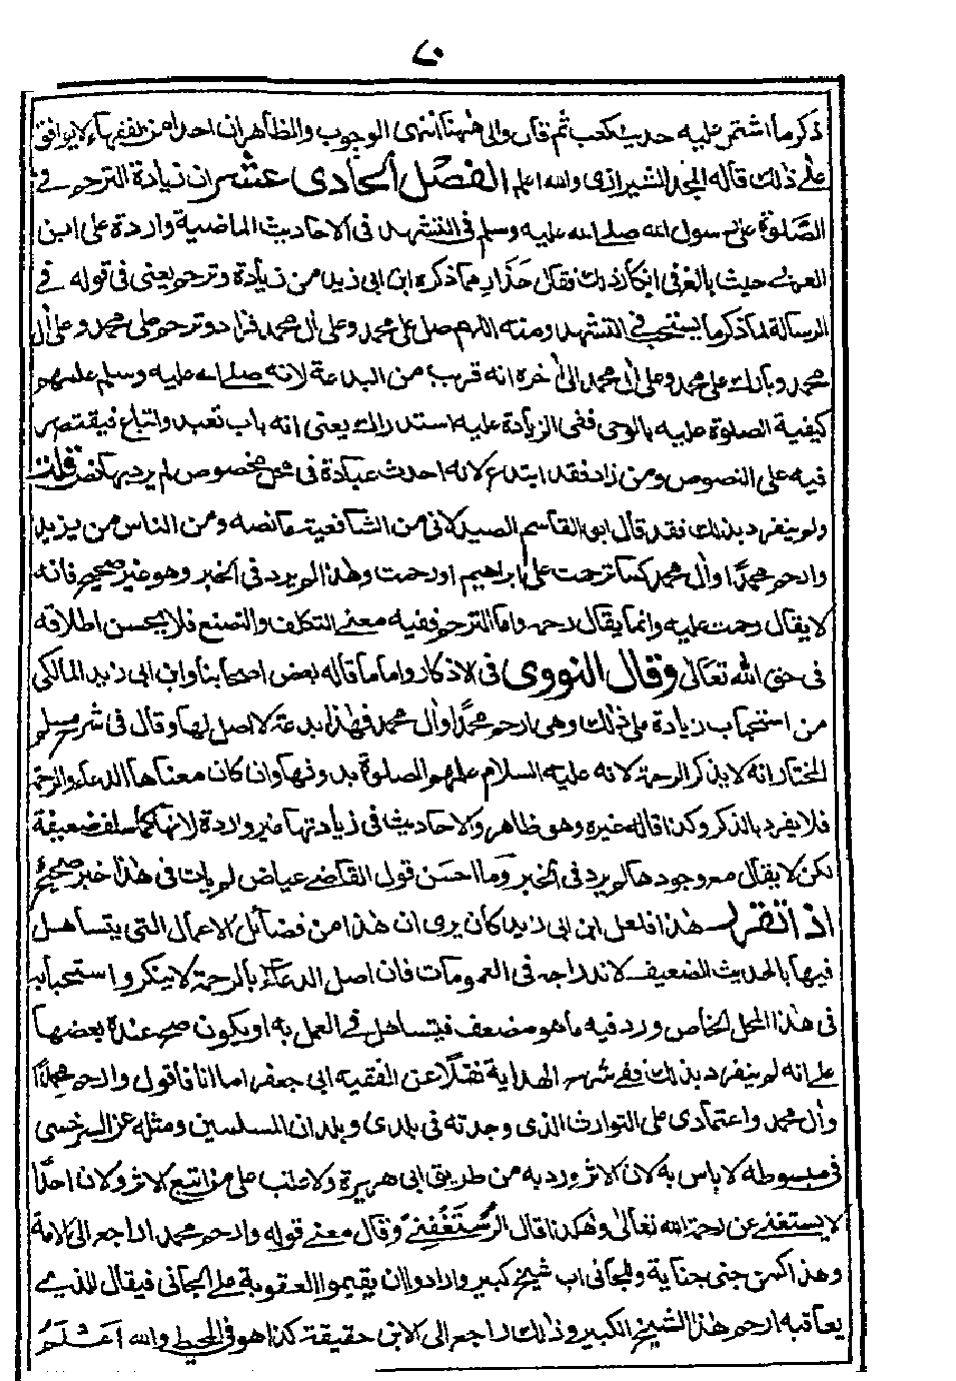 ٧٠
ذكر ما اشتمر عليه حديث كعب ثم قال والى هٰهنا انتهى الوجوب والظاهر ان احدا من الفقهاء لا يوافق
علے ذلك قاله المجد الشيرازى والله اعلم الفصل الحادى عشر ان زيادة الترحم فے
الصّلوة على رسول الله صلے الله عليه وسلم فى التشهد فى الاحاديث الماضية واردة على ابن
العربے حيث بالغ فى انكار ذلك فقال حذار مما ذكره ابن ابى زيد من زيادة وترحم يعنى فى قوله فے
الرسالة لما ذكر ما يستحب فے التشهد ومنه اللهم صل على محمد وعلى اٰل محمد فزاد وترحم على محمد وعلى اٰل
محمد وبارك على محمد وعلى اٰل محمد الى اٰخره انه قريب من البدعة لانه صلے الله عليه وسلم علمهم
كيفية الصلوة عليه بالوحى ففى الزيادة عليه استدراك يعنى انه باب تعبد واتباع فيقتصر
فيه على النصوص ومن زاد فقد ابتدع لانه احدث عبادة فى محل مخصوص لم يرد بها نص قلت
ولم ينفرد بذلك فقد قال ابو القاسم الصيدلانى من الشافعية ما نصه ومن الناس من يزيد
وارحم محمدًا واٰل محمد كما ترحمت على ابراهيم او رحمت وهٰذا لم يرد فى الخبر وهو غير صحيح فانه
لا يقال رحمت عليه وانما يقال رحمه واما الترحم ففيه معنے التكلف والتصنع فلا يحسن اطلاقه
فى حق الله تعالىٰ وقال النووى فى الاذكار واما ما قاله بعض اصحابنا وابن ابى زيد المالكى
من استحباب زيادة على ذلك وهى ارحم محمدًا واٰل محمد فهٰذا بدعة لا اصل لها وقال فى شرح مسلم
المختار انه لا يذكر الرحمة لانه عليه السلام علمهم الصلوة بدونها وان كان معناها الدعاء والرحمة
فلا يفرد بالذكر وكذا قاله غيره وهو ظاهر والاحاديث فى زيادتها غير واردة لانها كما سلف ضعيفة
لكن لا يقال مع وجودها لم يرد فى الخبر وما احسن قول القاضے عياض لم يات فى هذا خبر صحيح
اذا تقرر هٰذا فلعل ابن ابى زيد كان يرى ان هٰذا من فضائل الاعمال التى يتساهل
فيها بالحديث الضعيف لاندراجه فى العمومات فان اصل الدعاء بالرحمة لا ينكر واستحبابه
فى هٰذا المحل الخاص ورد فيه ما هو مضعف فيتساهل فے العمل به او يكون صح عنده بعضها
علے انه لم ينفرد بذلك ففے شرح الهداية نقلًا عن الفقيه ابى جعفر اما انا فاقول وارحم محمدًا
واٰل محمد واعتمادى على التوارث الذى وجدته فى بلدى وبلدان المسلمين ومثله عن السرخسى
فى مبسوطه لا باس به لان الاثر ورد به من طريق ابى هريرة ولا عتب على من اتبع الاثر ولان احدًا
لا يستغنے عن رحمة الله تعالىٰ وهٰكذا قال الرُّسْتَغْفَنِے وقال معنے قوله وارحم محمدا راجع الى الامة
وهذا كمن جنى جناية وللجانى اب شيخ كبير وارادوا ان يقيموا العقوبة على الجانى فيقال للذے
يعاقبه ارحم هٰذا الشيخ الكبير وذلك راجع الى الابن حقيقة كذا هو فى المحيط والله اَعْلَمُ